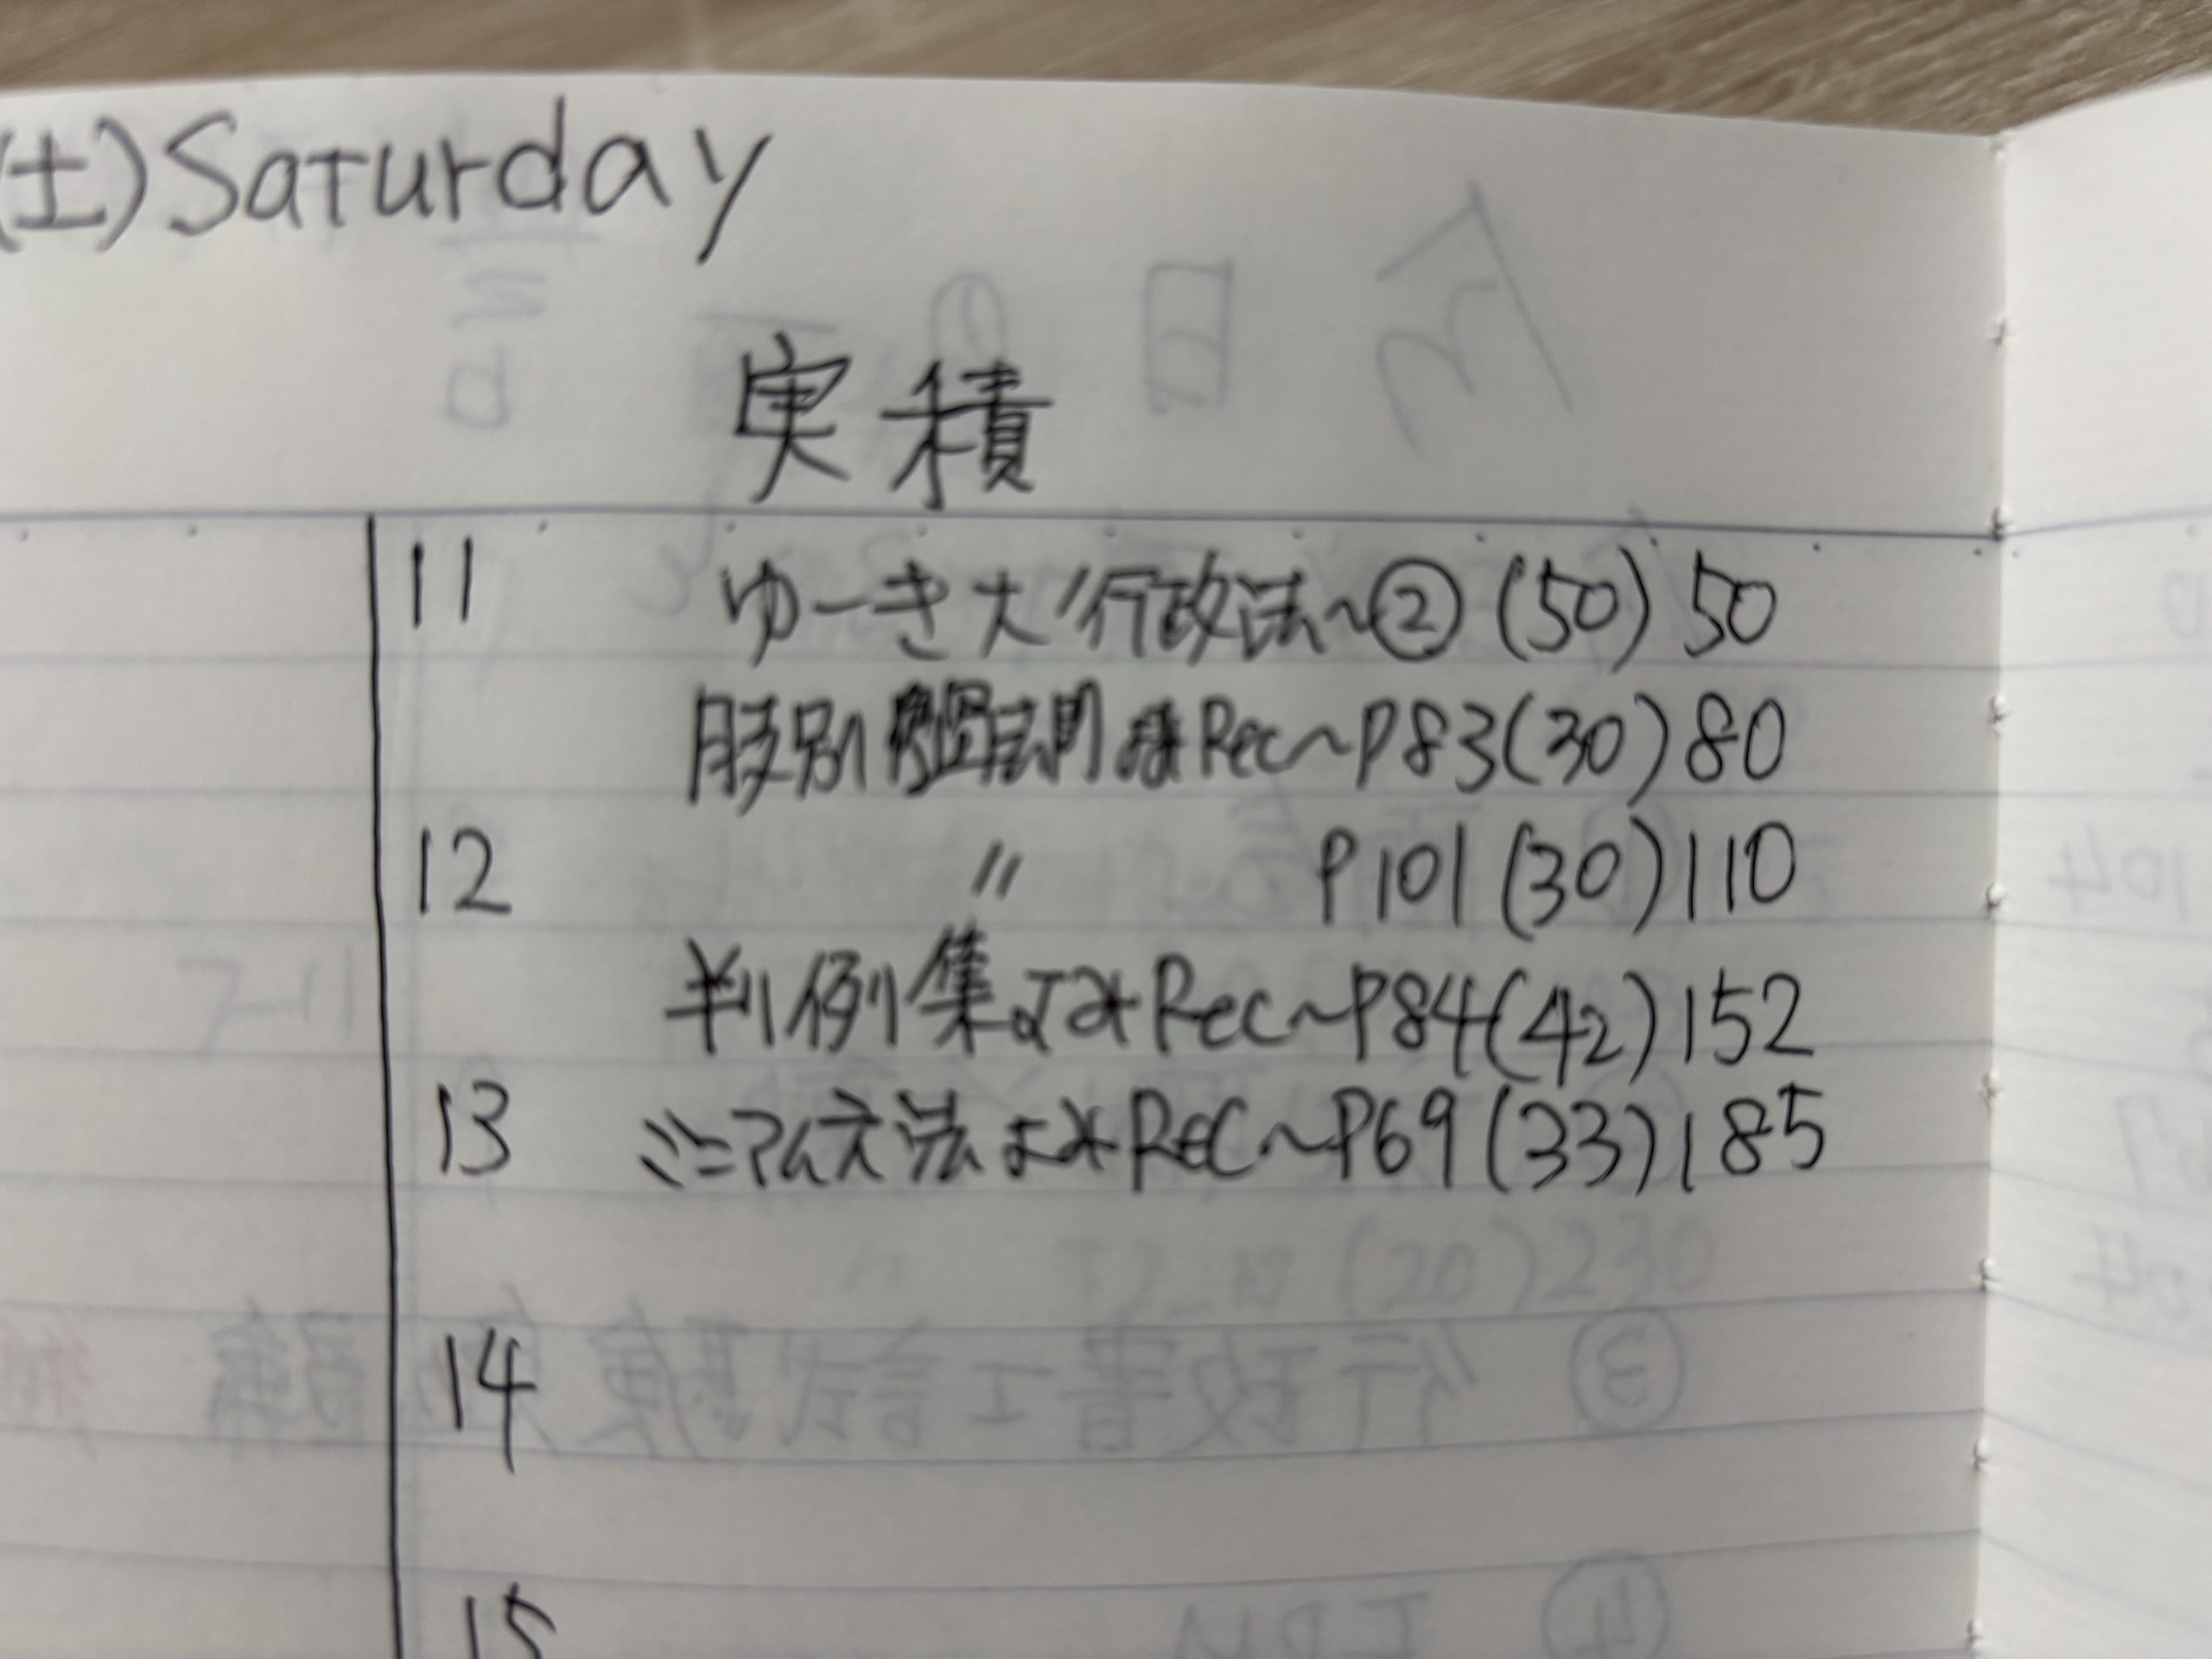 (土)Saturday
実積
11 ゆーき大行政法~② (50) 50
肢別 問 Rec~P83(30)80
12 〃 P101(30)110
判例集よみRec~P84(42)152
13 ミニマム六法よみREC~P69(33)185
14
15